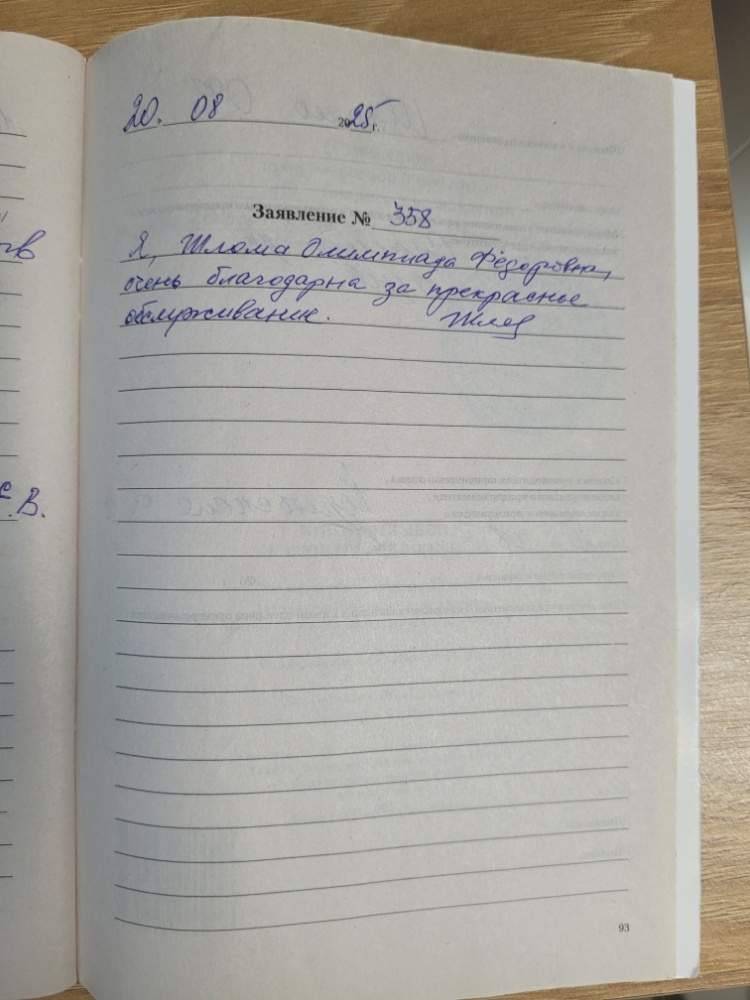 20. 08 2025 г.
Заявление № 358
Я, Шлома Олимпиада Фёдоровна,
очень благодарна за прекрасное
обслуживание.
В.
93